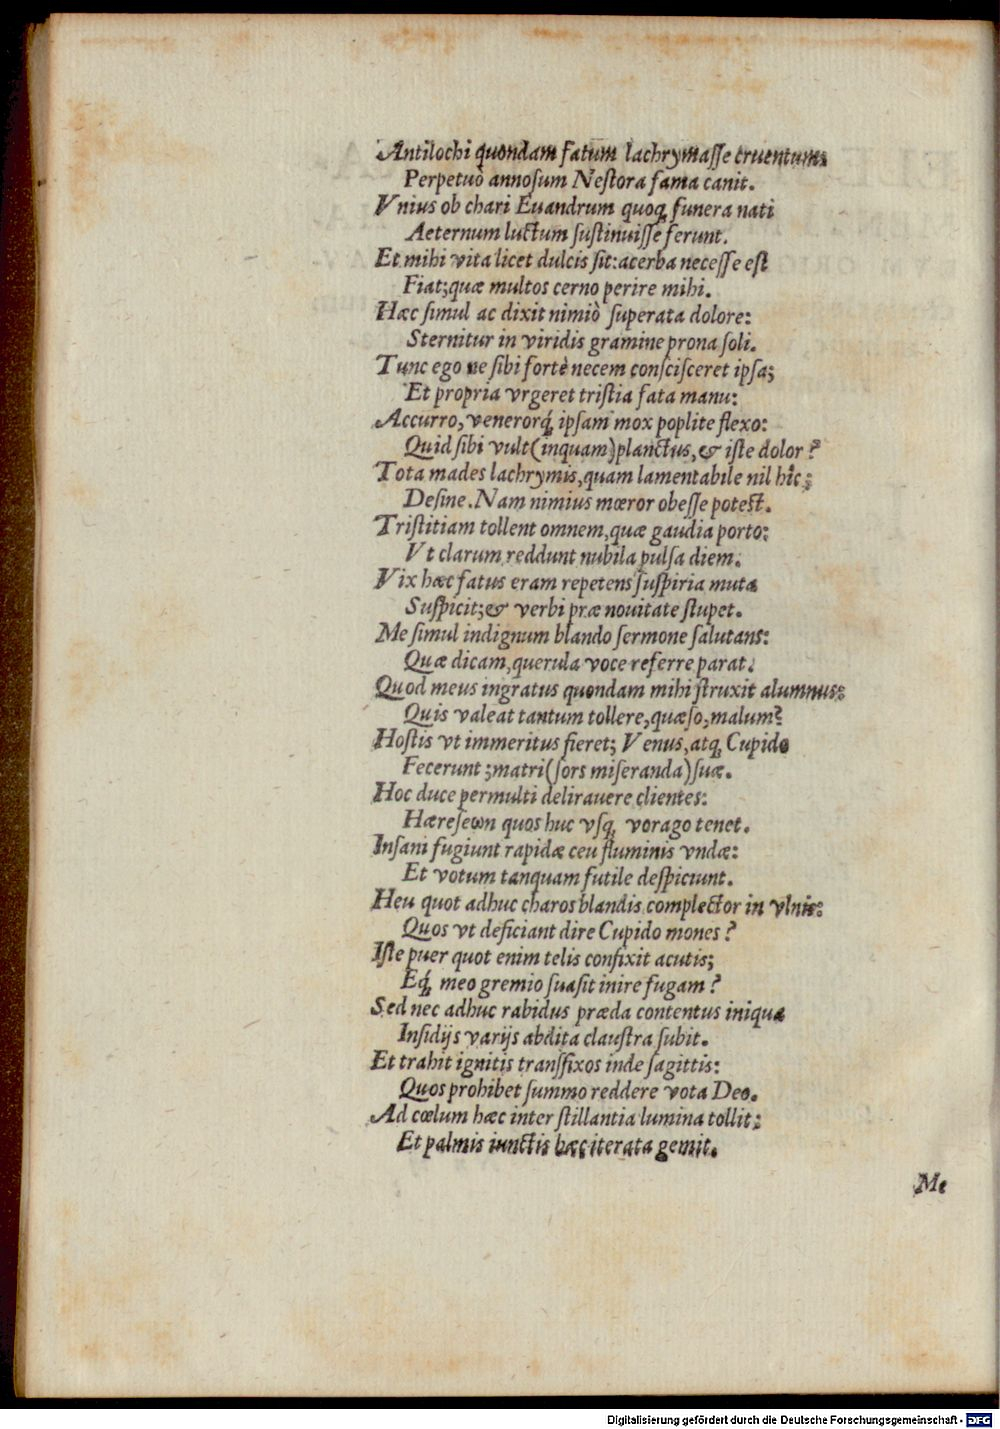 Antilochi quondam fatum lachrymaſſe cruentum:
Perpetuò annoſum Neſtora fama canit.
Vnius ob chari Euandrum quoq; funera nati
Aeternum luctum ſuſtinuiſſe ferunt.
Et mihi vita licet dulcis ſit: acerba neceſſe eſt
Fiat; quæ multos cerno perire mihi.
Hæc ſimul ac dixit nimiò ſuperata dolore:
Sternitur in viridis gramine prona ſoli.
Tunc ego ne ſibi fortè necem conſciſceret ipſa;
Et propria vrgeret triſtia fata manu:
Accurro, venerorq́; ipſam mox poplite flexo:
Quid ſibi vult (inquam) planctus, & iſte dolor?
Tota mades lachrymis, quam lamentabile nil hîc;
Deſine. Nam nimius mœror obeſſe poteſt.
Triſtitiam tollent omnem, quæ gaudia porto:
Vt clarum reddunt nubila pulſa diem.
Vix hæc fatus eram repetens ſuſpiria muta
Suſpicit; & verbi præ nouitate ſtupet.
Me ſimul indignum blando ſermone ſalutans:
Quæ dicam, querula voce referre parat.
Quod meus ingratus quondam mihi ſtruxit alumnus:
Quis valeat tantum tollere, quæſo, malum?
Hoſtis vt immeritus fieret; Venus, atq; Cupido
Fecerunt; matri (ſors miſeranda) ſuæ.
Hoc duce permulti delirauere clientes:
Hæreſeωn quos huc vſq; vorago tenet.
Inſani fugiunt rapidæ ceu fluminis vndæ:
Et votum tanquam futile deſpiciunt.
Heu quot adhuc charos blandis complector in vlnis:
Quos vt deficiant dire Cupido mones?
Iſte puer quot enim telis confixit acutis;
Eq́; meo gremio ſuaſit inire fugam?
Sed nec adhuc rabidus præda contentus iniqua
Inſidijs varijs abdita clauſtra ſubit.
Et trahit ignitis transfixos inde ſagittis:
Quos prohibet ſummo reddere vota Deo.
Ad cœlum hæc inter ſtillantia lumina tollit:
Et palmis iunctis hæc iterata gemit.
Me
Digitalisierung gefördert durch die Deutsche Forschungsgemeinschaft - DFG